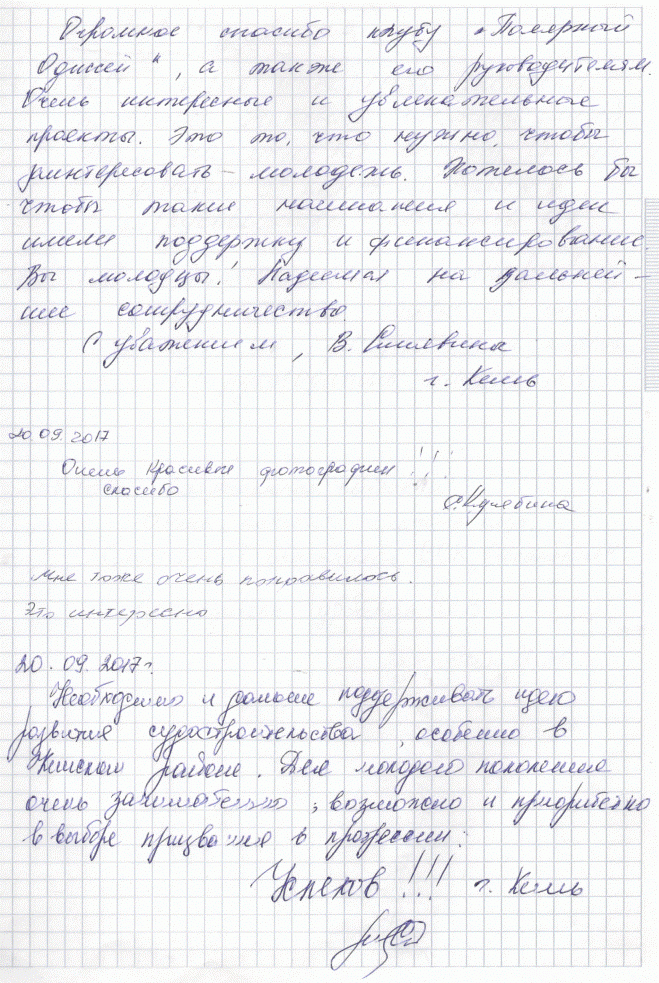 Огромное спасибо клубу "Полярный
Одиссей", а также его руководителям.
Очень интересные и увлекательные
проекты. Это то, что нужно, чтобы
заинтересовать молодежь. Хотелось бы
чтобы такие начинания и идеи
имели поддержку и финансирование.
Вы молодцы! Надеемся на дальней-
шее сотрудничество
С уважением, В.
г. Кемь
20.09.2017
Очень красивые фотографии !!!
спасибо
Кулябина
Мне тоже очень понравилось.
Это интересно
20.09.2017г.
Необходимо и дальше поддерживать идею
развития судостроительства, особенно в
Кемском районе. Для молодого поколения
очень занимательно, возможно и приоритетно
в выборе призвания в профессии.
Успехов !!! г. Кемь